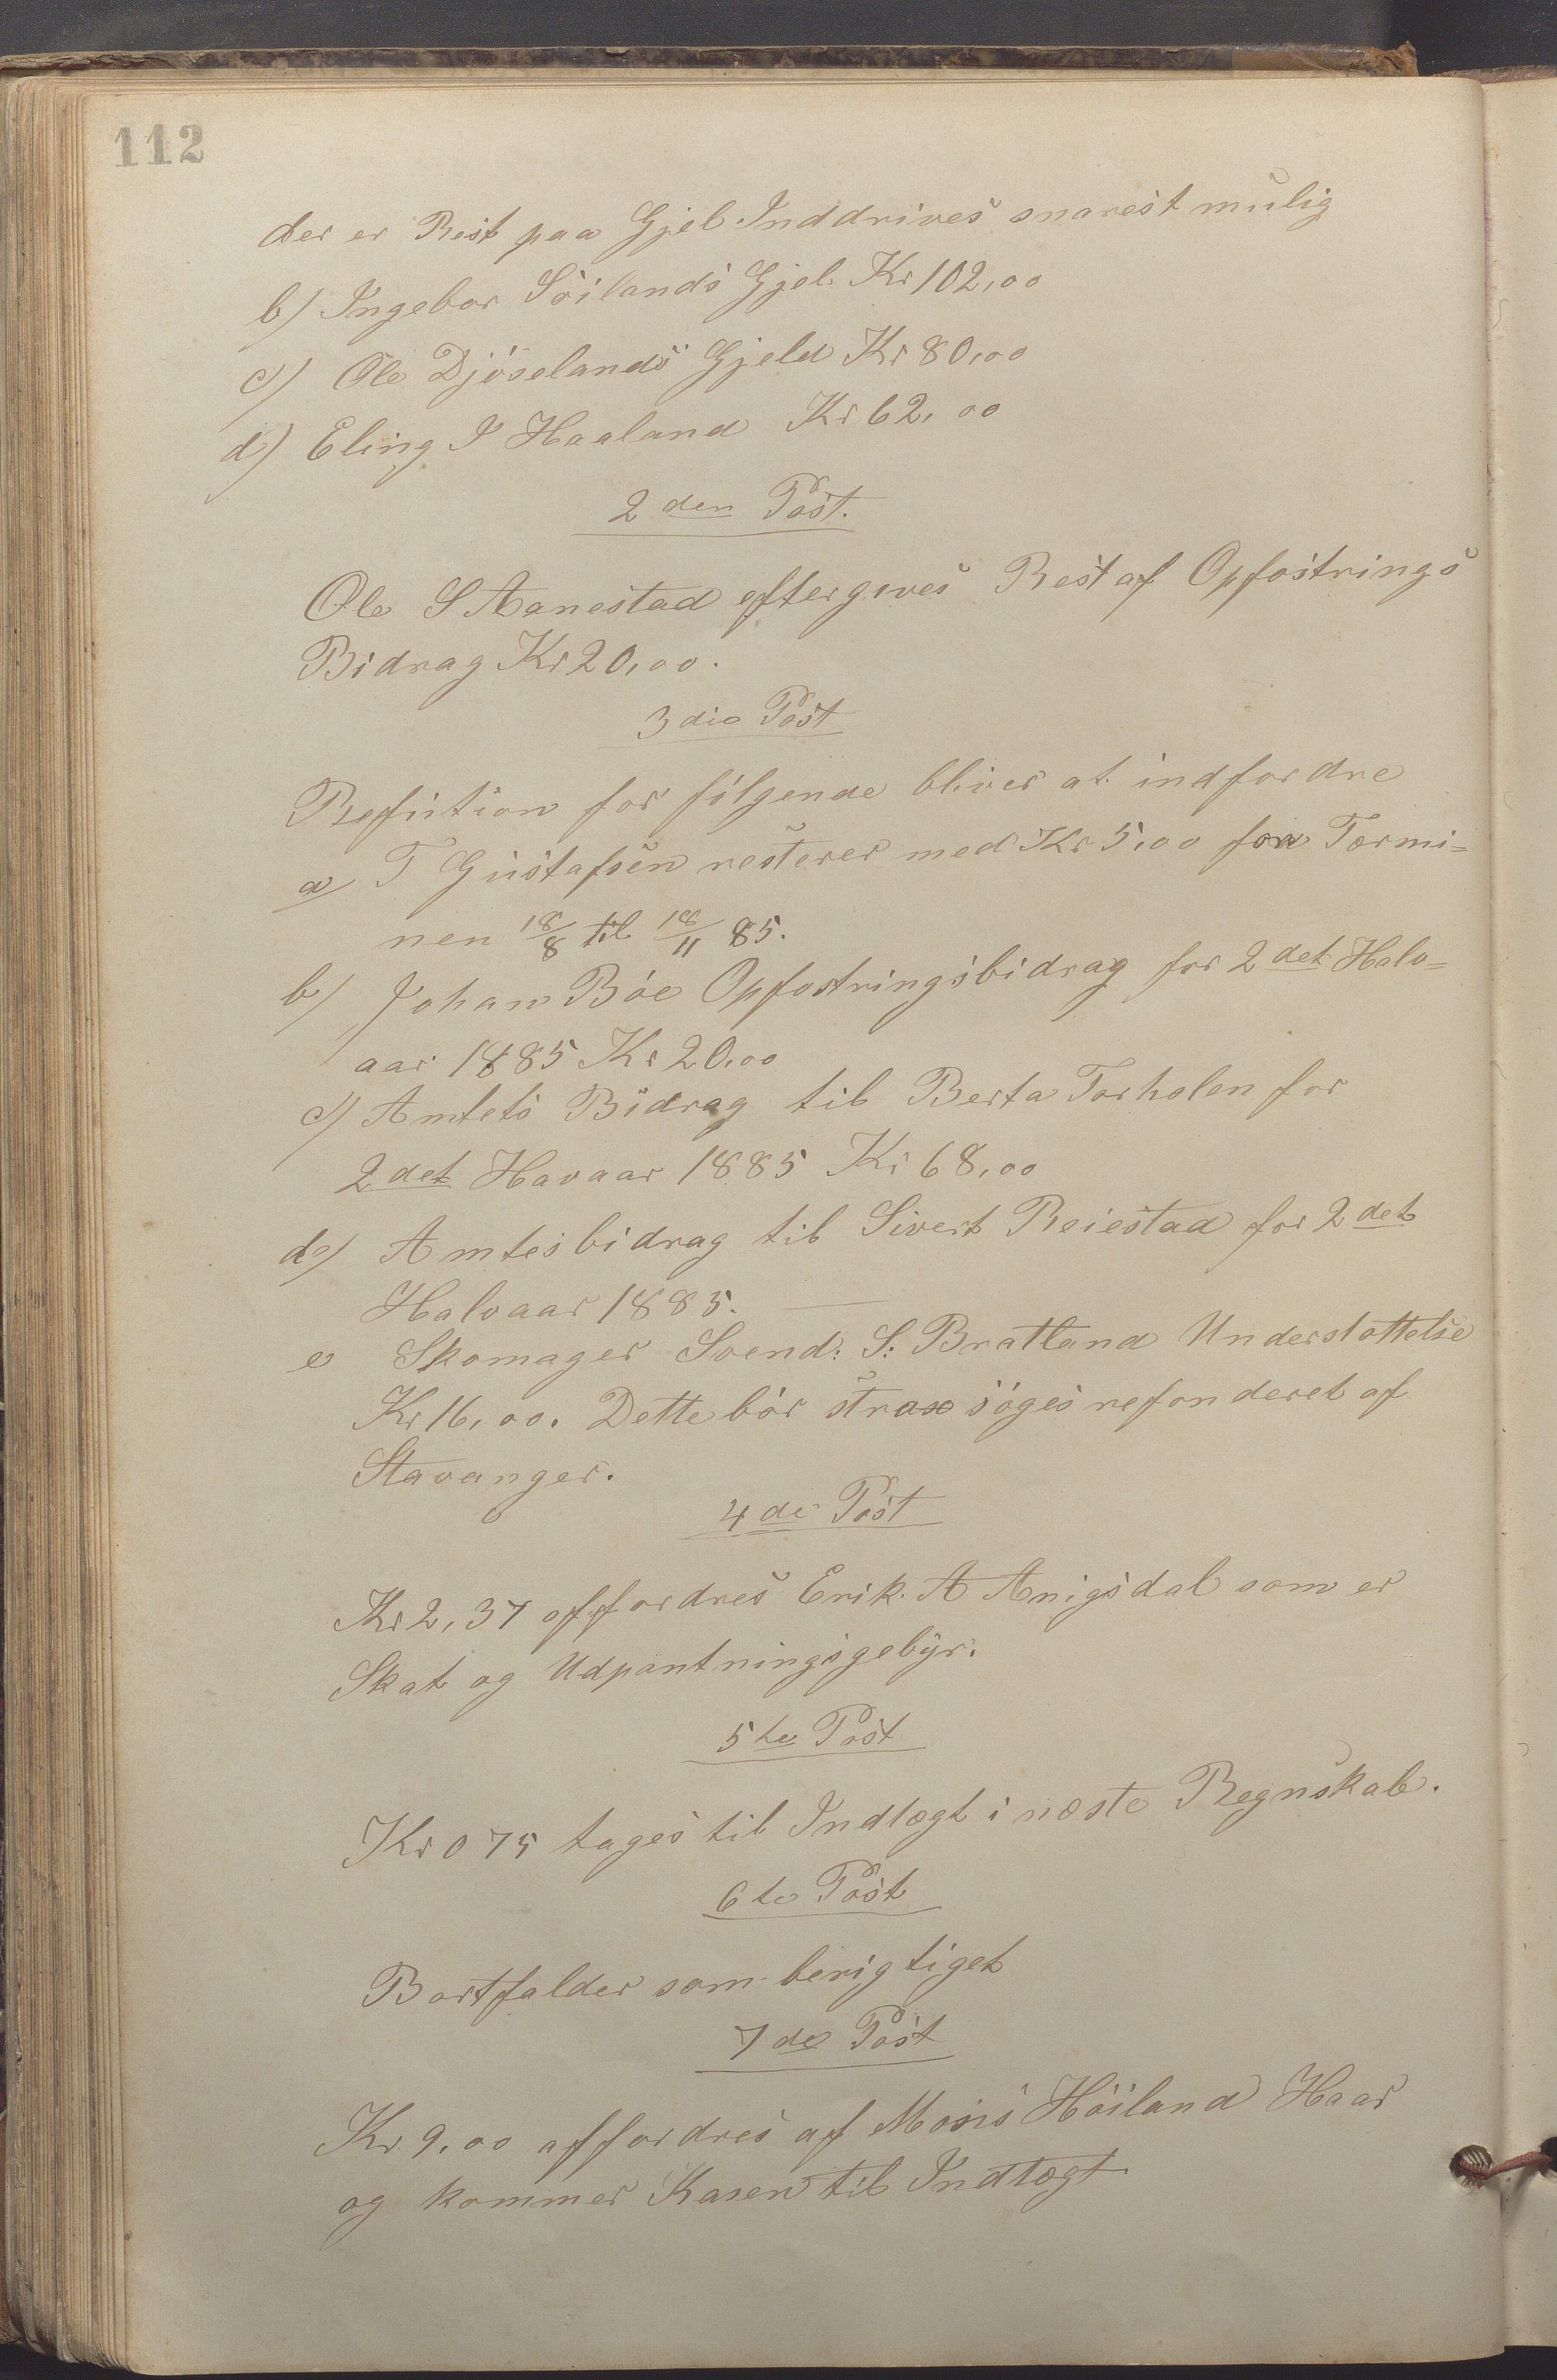 112
der er Rest paa Gjel Inddrives snarest mulig
b) Ingebor Söilands Gjel. Kr 102,00
c) Ole Djöselands Gjeld Kr 80,00
d) Eling I Haaland Kr 62,00
2den Post.
Ole S Aanestad eftergives Rest af Opfostrings
Bidrag Kr 20,00.
3die Post
Refution for fölgende bliver at indfordre
a) T Gustafsen resterer med Kr 5,00 fra Termi=
nen 18/8 til 18/11 85.
b) Johan Böe Opfostringsbidrag for 2det Halv=
aar 1885 Kr 20,00
c) Amtets Bidrag til Berta Torholen for
2det Havaar 1885 Kr 68,00
d) Amtesbidrag til Sivert Reiestad for 2det
Halvaar 1885. —
e Skomager Svend: S: Bratland Understottelse
Kr 16,00. Dette bör strax söges refonderet af
Stavanger.
4de Post
Kr 2,37 affordres Erik. A Anigsdal som er
Skat og Udpantningsgebyr.
5te Post
Kr 0 75 tages til Indtægt i næste Regnskab.
6te Post
Bortfalder som berigtiget
7de Post
Kr 9,00 affordres af Mosis Höiland Haar
og kommer Kasen til Indtægt